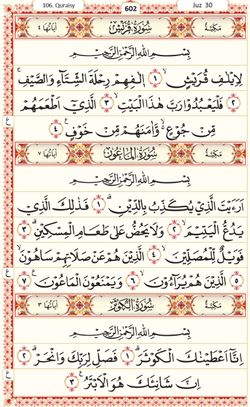 106. Quraisy 602 Juz 30
مكية سورة قريش آياتها ٤
بِسْمِ اللّٰهِ الرَّحْمٰنِ الرَّحِيْمِ
لِاِيْلٰفِ قُرَيْشٍۙ ١ اٖلٰفِهِمْ رِحْلَةَ الشِّتَاۤءِ وَالصَّيْفِۚ
٢ فَلْيَعْبُدُوْا رَبَّ هٰذَا الْبَيْتِۙ ٣ الَّذِيْٓ اَطْعَمَهُمْ
مِّنْ جُوْعٍ ەۙ وَّاٰمَنَهُمْ مِّنْ خَوْفٍ ٤
مكية سورة الماعون آياتها ٧
بِسْمِ اللّٰهِ الرَّحْمٰنِ الرَّحِيْمِ
اَرَءَيْتَ الَّذِيْ يُكَذِّبُ بِالدِّيْنِۗ ١ فَذٰلِكَ الَّذِيْ
يَدُعُّ الْيَتِيْمَۙ ٢ وَلَا يَحُضُّ عَلٰى طَعَامِ الْمِسْكِيْنِۗ ٣
فَوَيْلٌ لِّلْمُصَلِّيْنَۙ ٤ الَّذِيْنَ هُمْ عَنْ صَلَاتِهِمْ سَاهُوْنَۙ
٥ الَّذِيْنَ هُمْ يُرَاۤءُوْنَۙ ٦ وَيَمْنَعُوْنَ الْمَاعُوْنَ ٧
مكية سورة الكوثر آياتها ٣
بِسْمِ اللّٰهِ الرَّحْمٰنِ الرَّحِيْمِ
اِنَّآ اَعْطَيْنٰكَ الْكَوْثَرَۗ ١ فَصَلِّ لِرَبِّكَ وَانْحَرْۗ ٢
اِنَّ شَانِئَكَ هُوَ الْاَبْتَرُ ٣